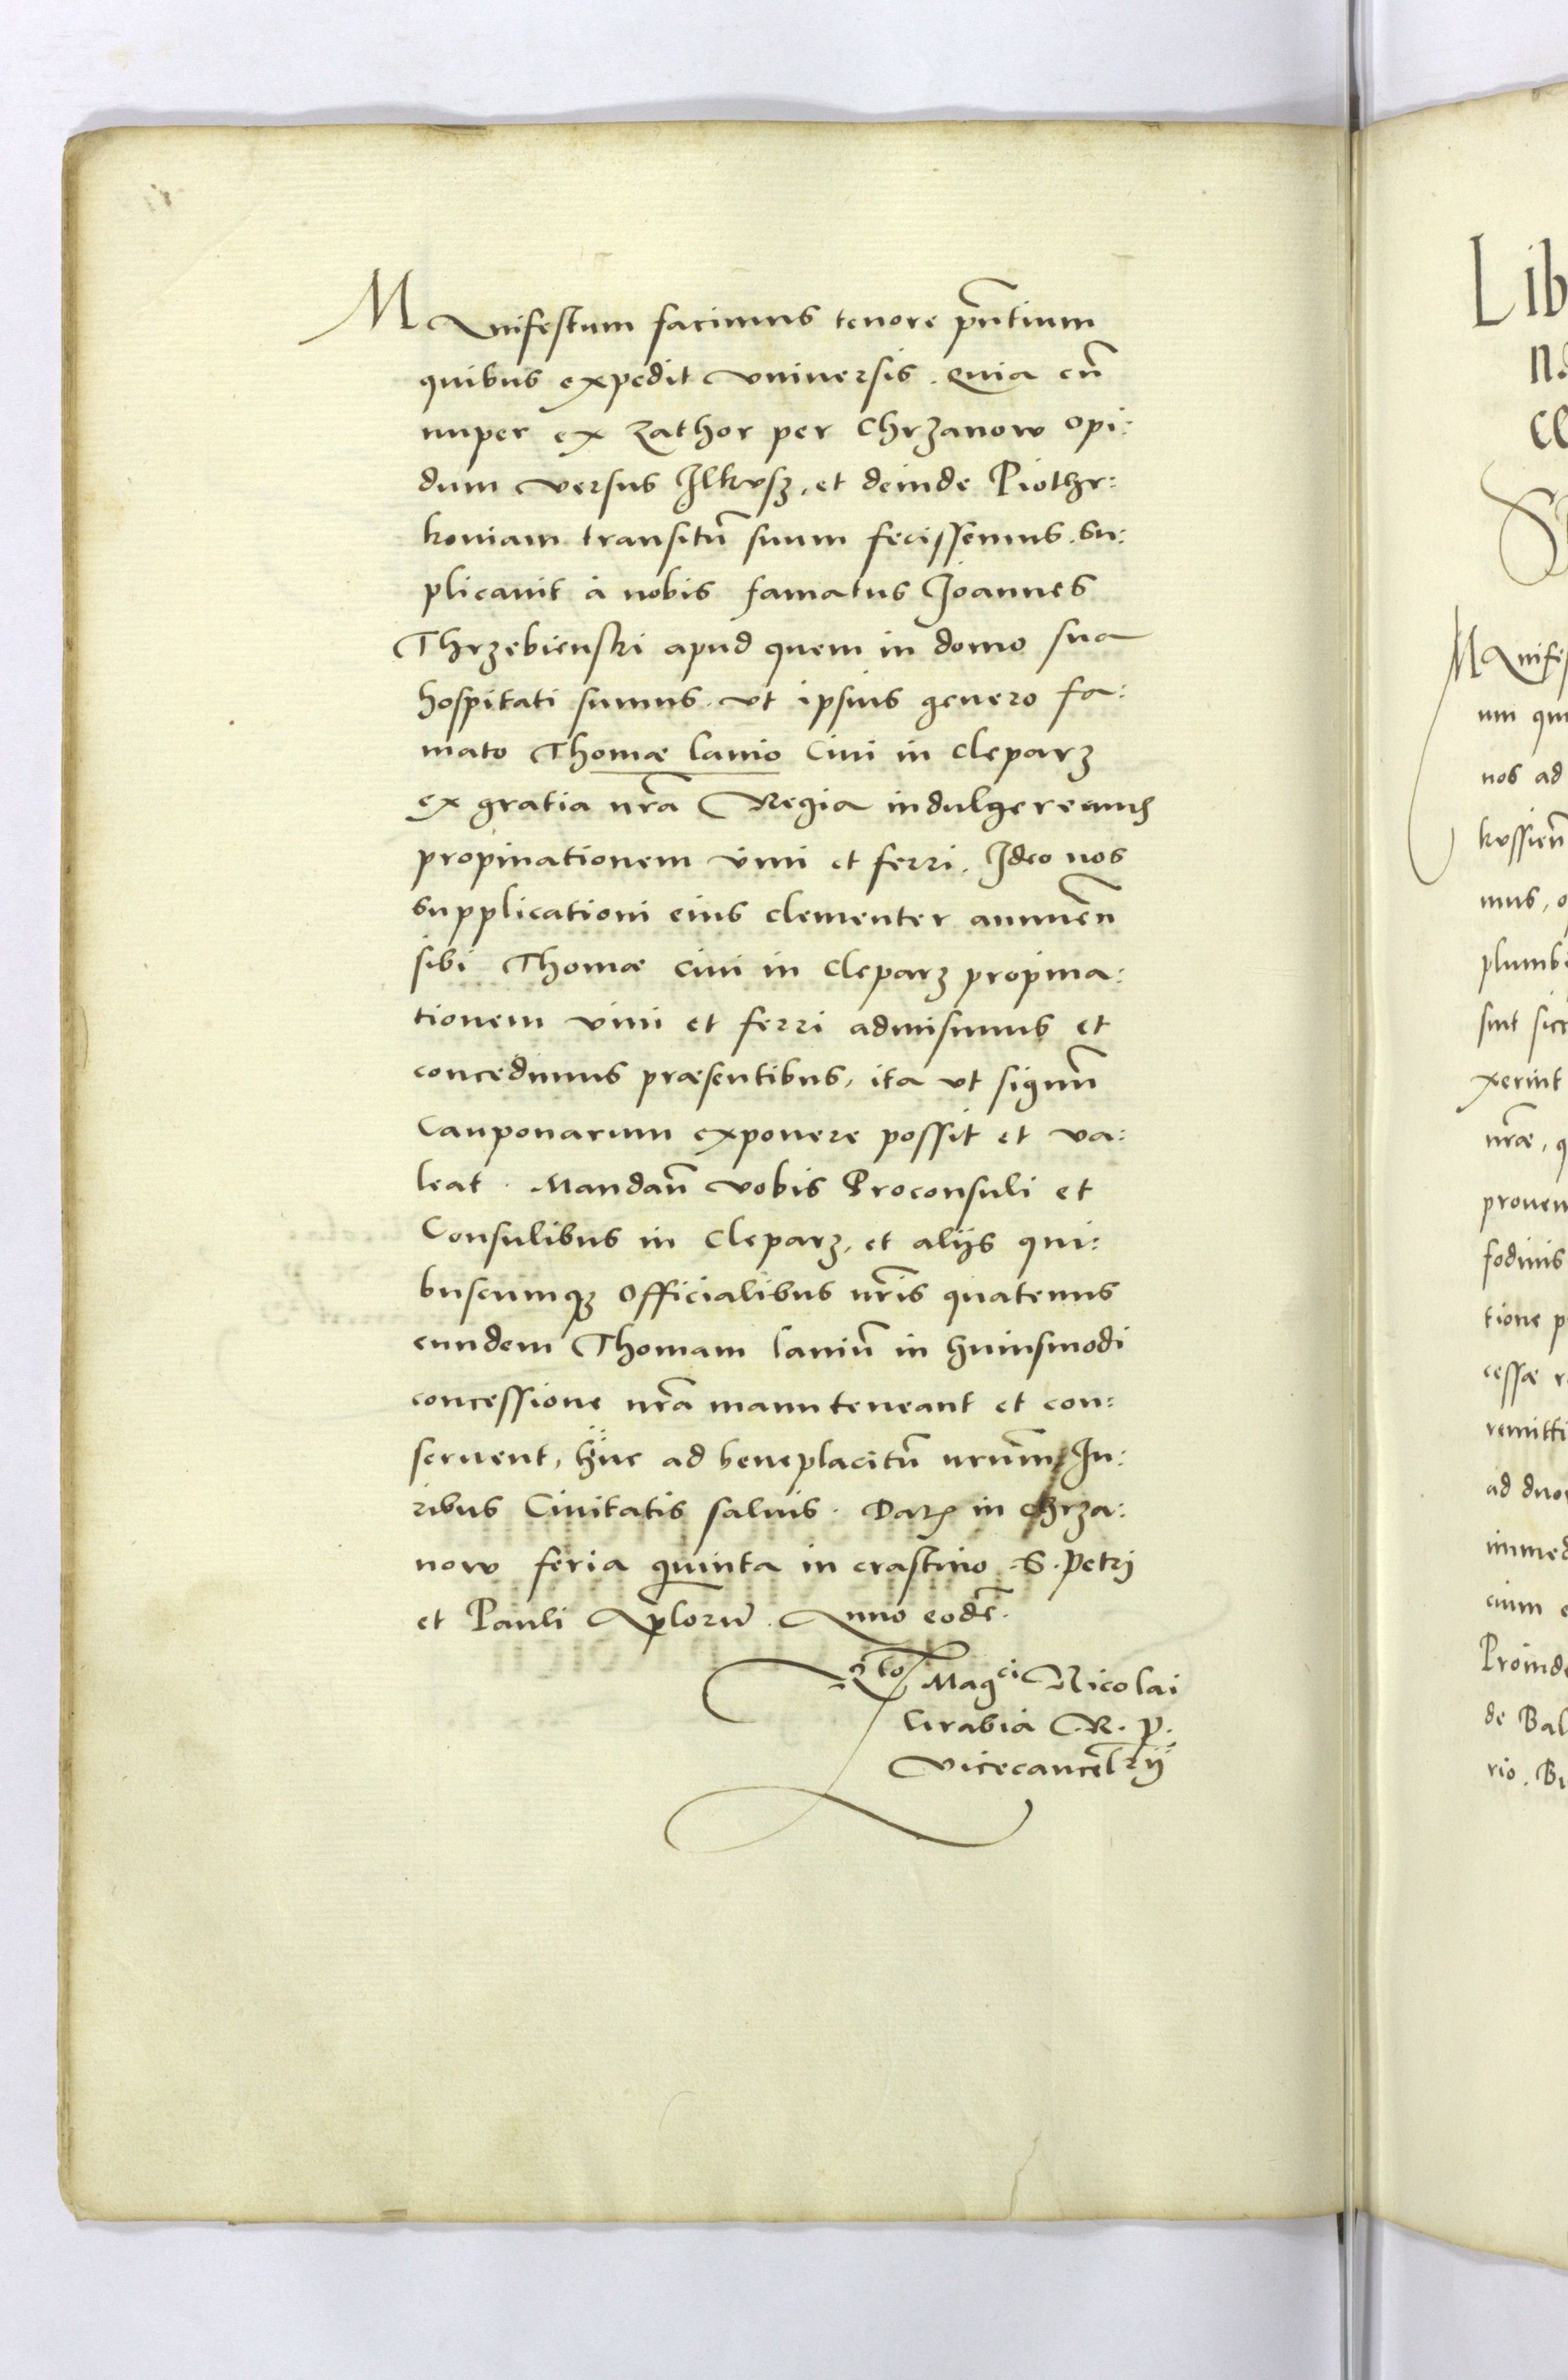 Manifestum facimus tenore pn̄tium
quibus expedit vniuersis. Quia cū
nuper ex Zathor per Chrzanow opi:
dum versus Ilkvsz, et deinde Piothr:
kouiam transitū suum fecissemus. Su:
plicauit à nobis famatus Joannes
Thrzebienski apud quem in domo sua
hospitati sumus. vt ipsius genero fa:
mato Thomæ lanio Ciui in Cleparz
ex gratia nr̄a Regia indulgeremus
propinationem vini et ferri. Ideo nos
supplicationi eius clementer annuen̄
sibi Thomæ ciui in Cleparz propina:
tionem vini et ferri admisimus et
concedimus præsentibus, ita vt signū
Cauponarum exponere possit et va:
leat. Mandan̄ vobis Proconsuli et
Consulibus in Cleparz, et alijs qui:
buscumqȝ Officialibus nr̄is quatenus
eundem Thomam laniū in huiusmodi
concessione nr̄a manuteneant et con:
seruent, ad beneplacitū nrūm Iu:
ribus Ciuitatis saluis. Datꝭ in Chrza:
now feria quinta in crastino S. Petri
et Pauli Ap̄lorū. Anno eodē.
Rto Magci Nicolai
Grabia R. P.
Vicecancellrij
Lib
M Anifes
um qu
nos ad
kvssien̄
mus,
plumb
sint sicc
xerint
nræ, q
prouen
fodinis
tione p
cessæ r
remitti
ad duo
immed
cium e
Proinde
de Bal
rio. Bu